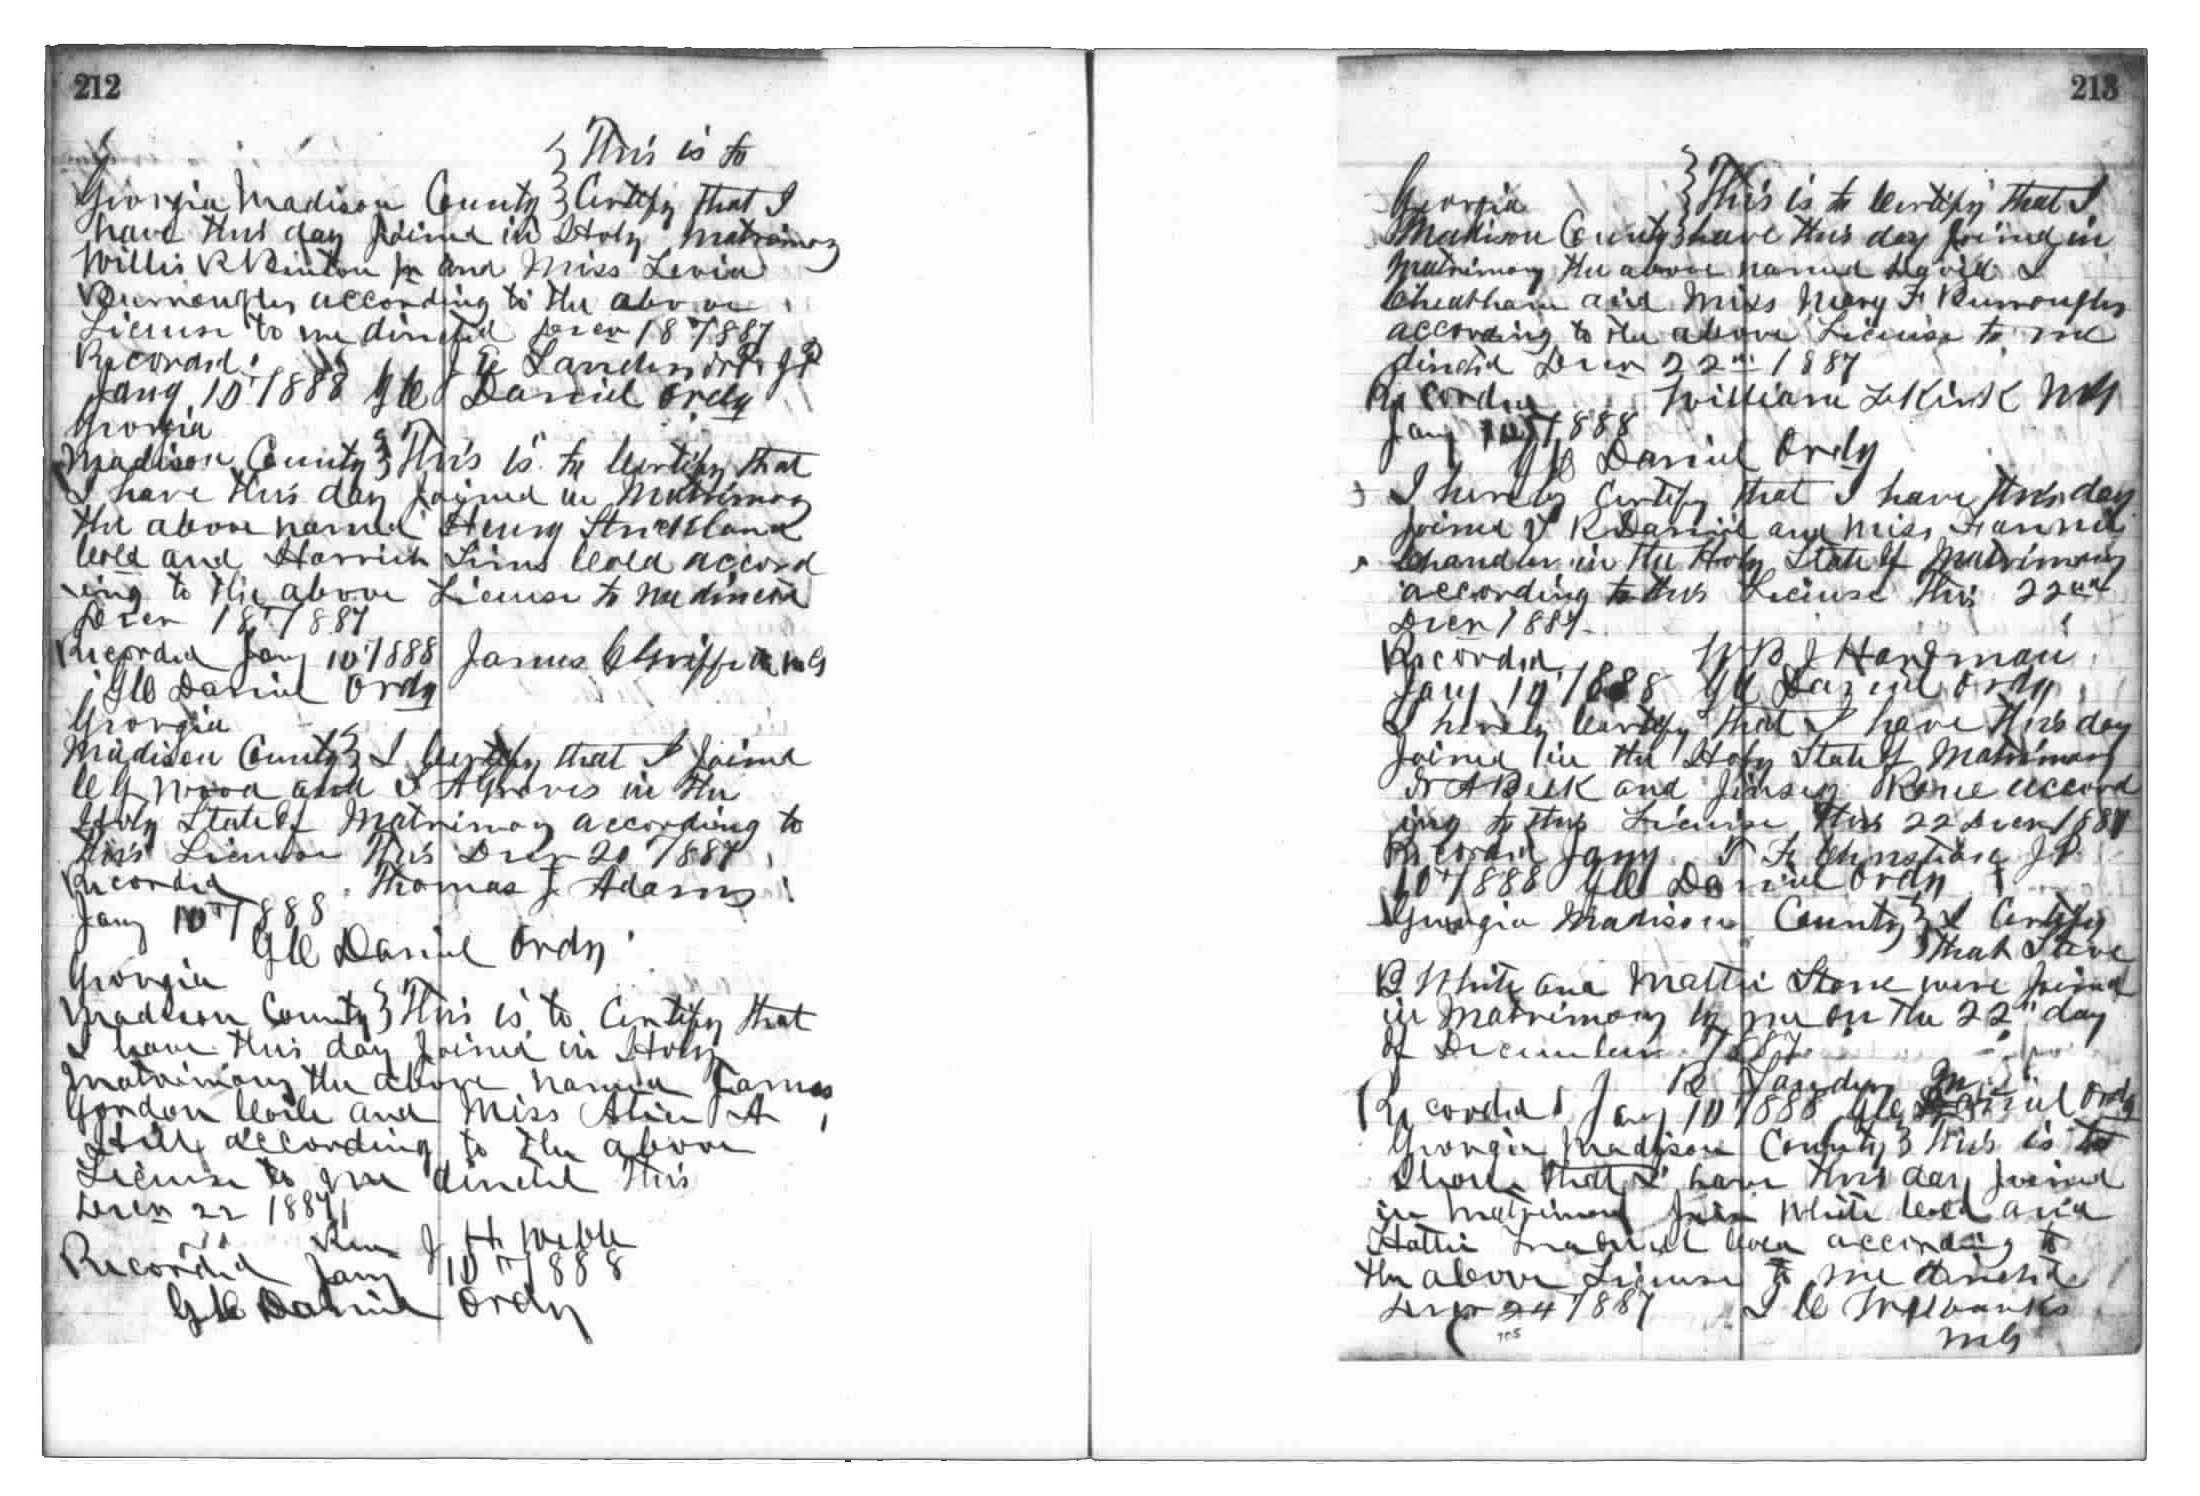 212
This is to
Georgia Madison County } Certify that I
have this day Joined in Holy Matrimony
Willis R Kinton Jr and Miss Levia
Burroughs according to the above
License to me directed Decr 18" 1887
Recorded
Jany 10" 1888 G C Daniel Ordy
Georgia
Madison County } This is to Certify that
I have this day Joined in Matrimony
the above named Henry Strickland
Cold and Harriet Sims Cold accord
ing to the above License to me directed
Decr 18" 1887
Recorded Jany 10" 1888 James C Griffeth M G
G C Daniel Ordy
Georgia
Madison County } I Certify that I Joined
C G Wood and S A Groves in the
Holy State of Matrimony according to
this License this Decr 20" 1887
Recorded Thomas J. Adams
Jany 10" 1888
G C Daniel Ordy
Georgia
Madison County } This is to Certify that
I have this day Joined in Holy
Matrimony the above named James
Gordon Coile and Miss Alice A
Hill according to the above
License to me directed This
Decr 22 1887
Rev J H Webb
Recorded Jany 10" 1888
G C Daniel Ordy
213
Georgia } This is to Certify that I
Madison County } have this day Joined in
Matrimony the above named David L
Cheatham and Miss Mary F Burroughs
according to the above License to me
directed Decr 22nd 1887
Recorded William L Kirk M G
Jany 10" 1888
G C Daniel Ordy
I hereby Certify that I have this day
Joined J R Daniel and Miss Fannie
Chandler in the Holy State of Matrimony
according to this License This 22nd
Decr 1887
Recorded W B J Hardman
Jany 10" 1888 G C Daniel Ordy
I hereby Certify that I have this day
Joined in the Holy State of Matrimony
A Beck and Jinsey Rice accord
ing to this License this 22 Decr 1887
Recorded Jany T F Christian J P
10" 1888 G C Daniel Ordy
Georgia Madison County } I Certify
that Steve
B White and Mattie Stone were Joined
in Matrimony by me on the 22" day
of December 1887
R Sanders
Recorded Jany 10" 1888 G C Daniel Ordy
Georgia Madison County } this is to
Show that I have this day Joined
in Matrimony White Cold and
Hattie Cold according to
the above License to me directed
Decr 24" 1887 I C Wilbanks
M G